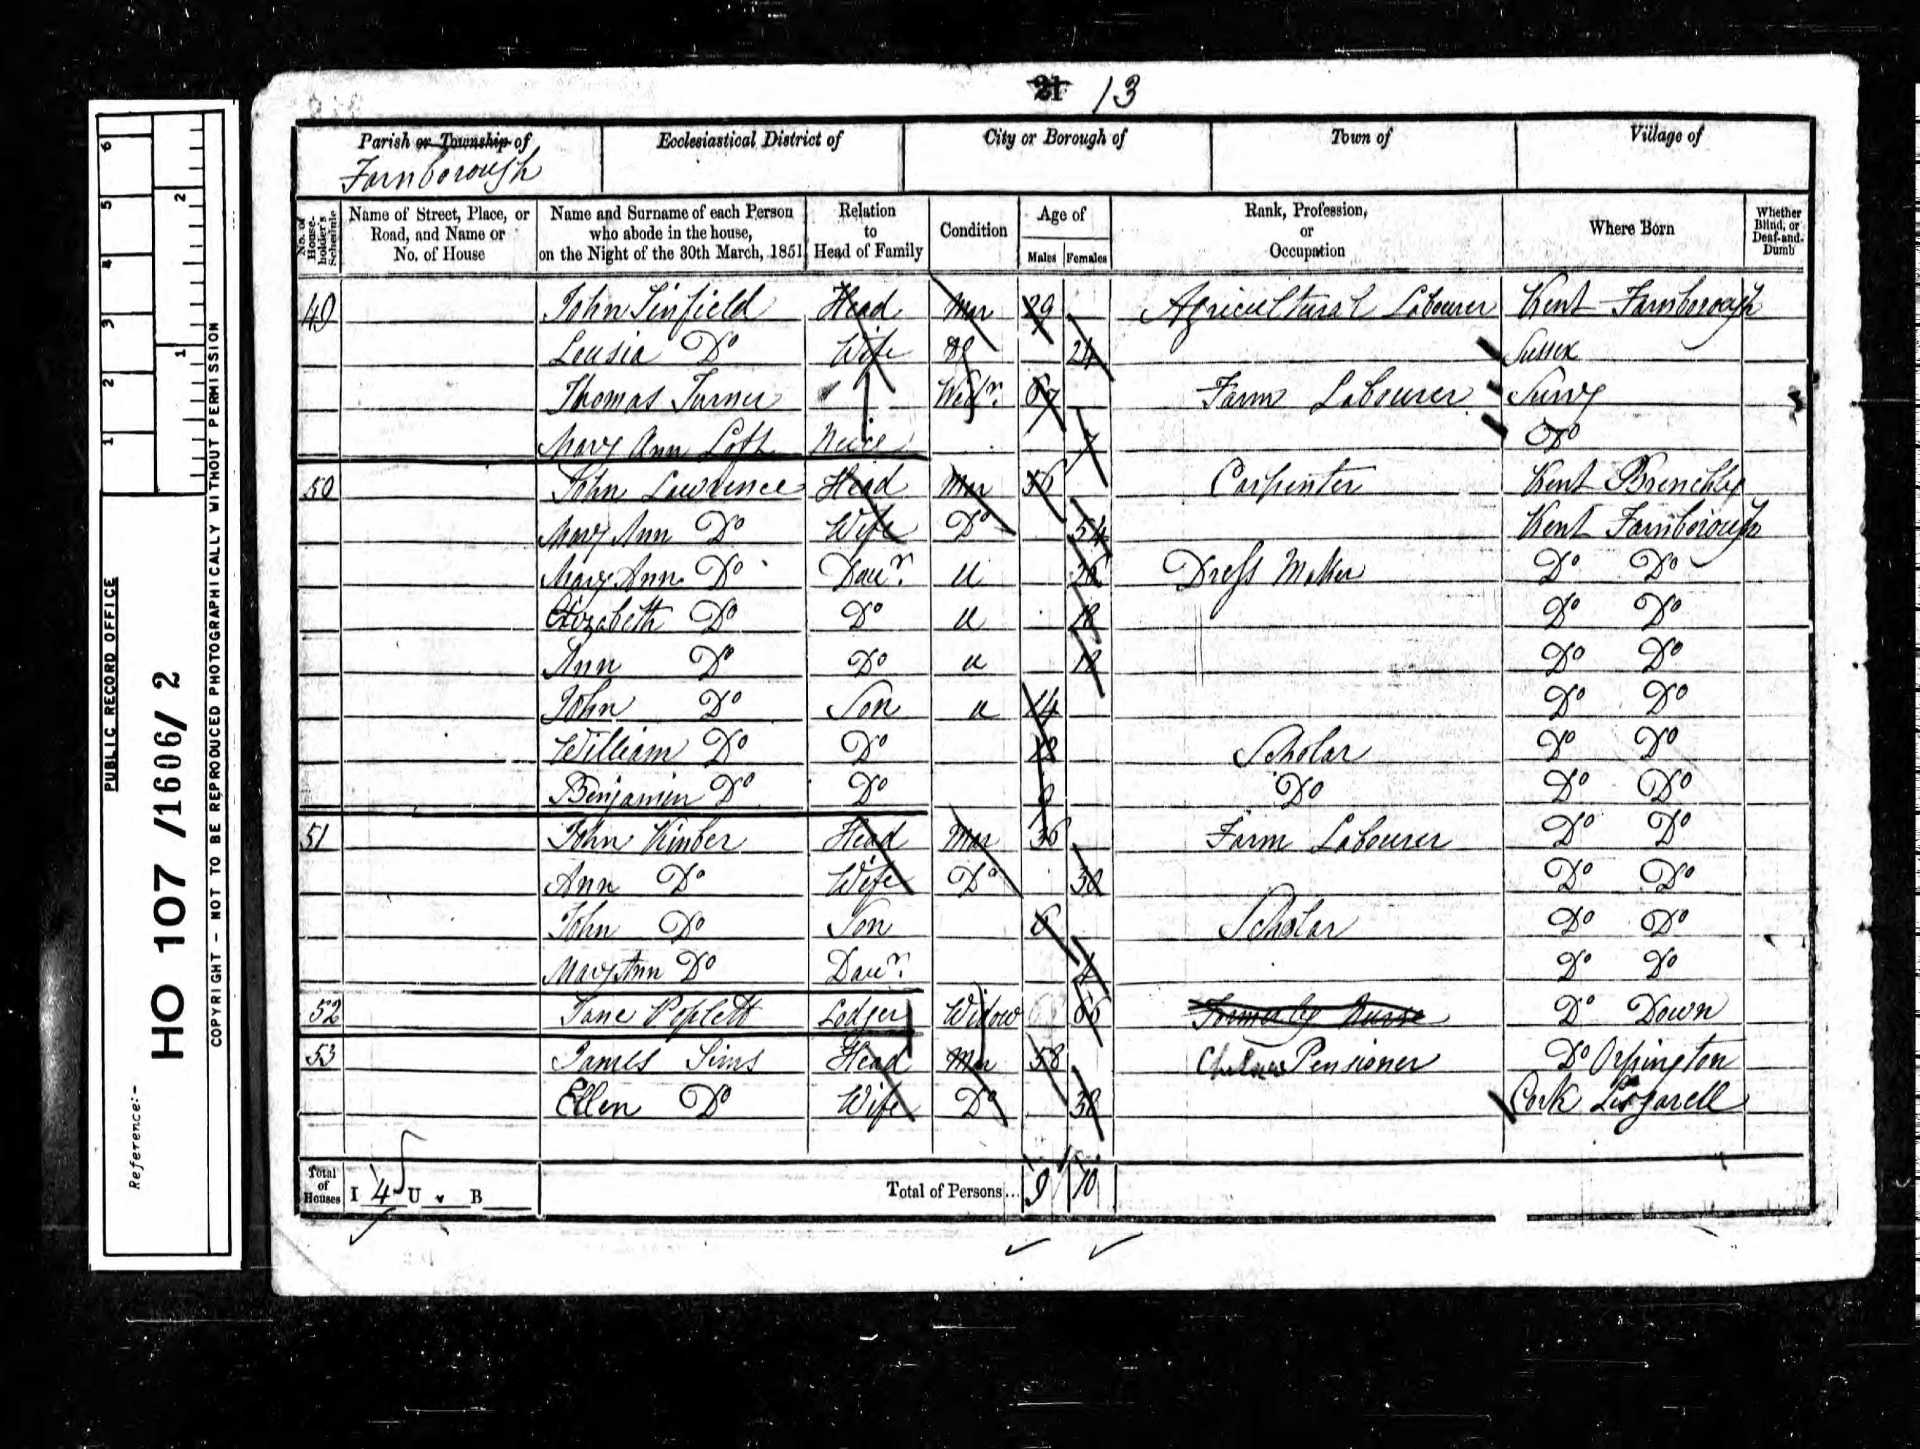 21 13
Parish or Township of Ecclesiastical District of City or Borough of Town of Village of
Farnborough
No. of House-holder's Schedule
Name of Street, Place, or Road, and Name or No. of House
Name and Surname of each Person who abode in the house, on the Night of the 30th March, 1851
Relation to Head of Family
Condition
Age of
Males Females
Rank, Profession, or Occupation
Where Born
Whether Blind, or Deaf-and-Dumb
49 John Sinfield Head Mar 29 Agricultural Labourer Kent Farnborough
Lousia Do Wife Do 24 Sussex
Thomas Turner Widr. 67 Farm Labourer Surry
Mary Ann Loft Neice 7 Do
50 John Lawrence Head Mar 56 Carpenter Kent Brenchly
Mary Ann Do Wife Do 54 Kent Farnborough
Mary Ann Do Daur. U Dress Maker Do Do
Elizabeth Do Do U 18 Do Do
Ann Do Do U 18 Do Do
John Do Son U 14 Do Do
William Do Do 12 Scholar Do Do
Benjamin Do Do Do Do Do
51 John Kimber Head Mar 36 Farm Labourer Do Do
Ann Do Wife Do 38 Do Do
John Do Son 6 Scholar Do Do
Mary Ann Do Daur. Do Do
52 Jane Poplett Lodger Widow 66 Formerly Nurse Do Down
53 James Sims Head Mar 58 Chelsea Pensioner Do Orpington
Ellen Do Wife Do 38 Cork
Total of Houses I 4 U B Total of Persons... 9 10
PUBLIC RECORD OFFICE
Reference:-
HO 107 /1606/ 2
COPYRIGHT - NOT TO BE REPRODUCED PHOTOGRAPHICALLY WITHOUT PERMISSION
1 2 3 4 5 6
1 2